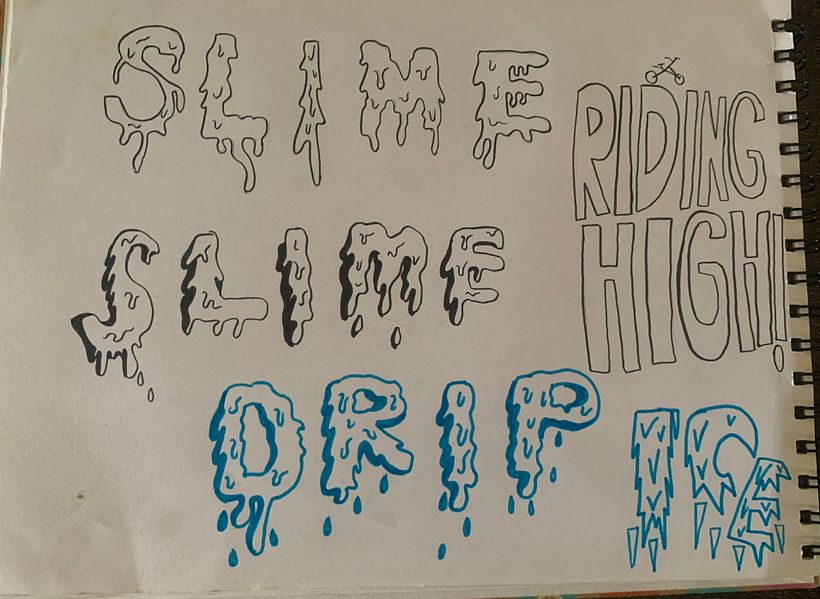 SLIME
RIDING
HIGH!
SLIME
DRIP
ICE